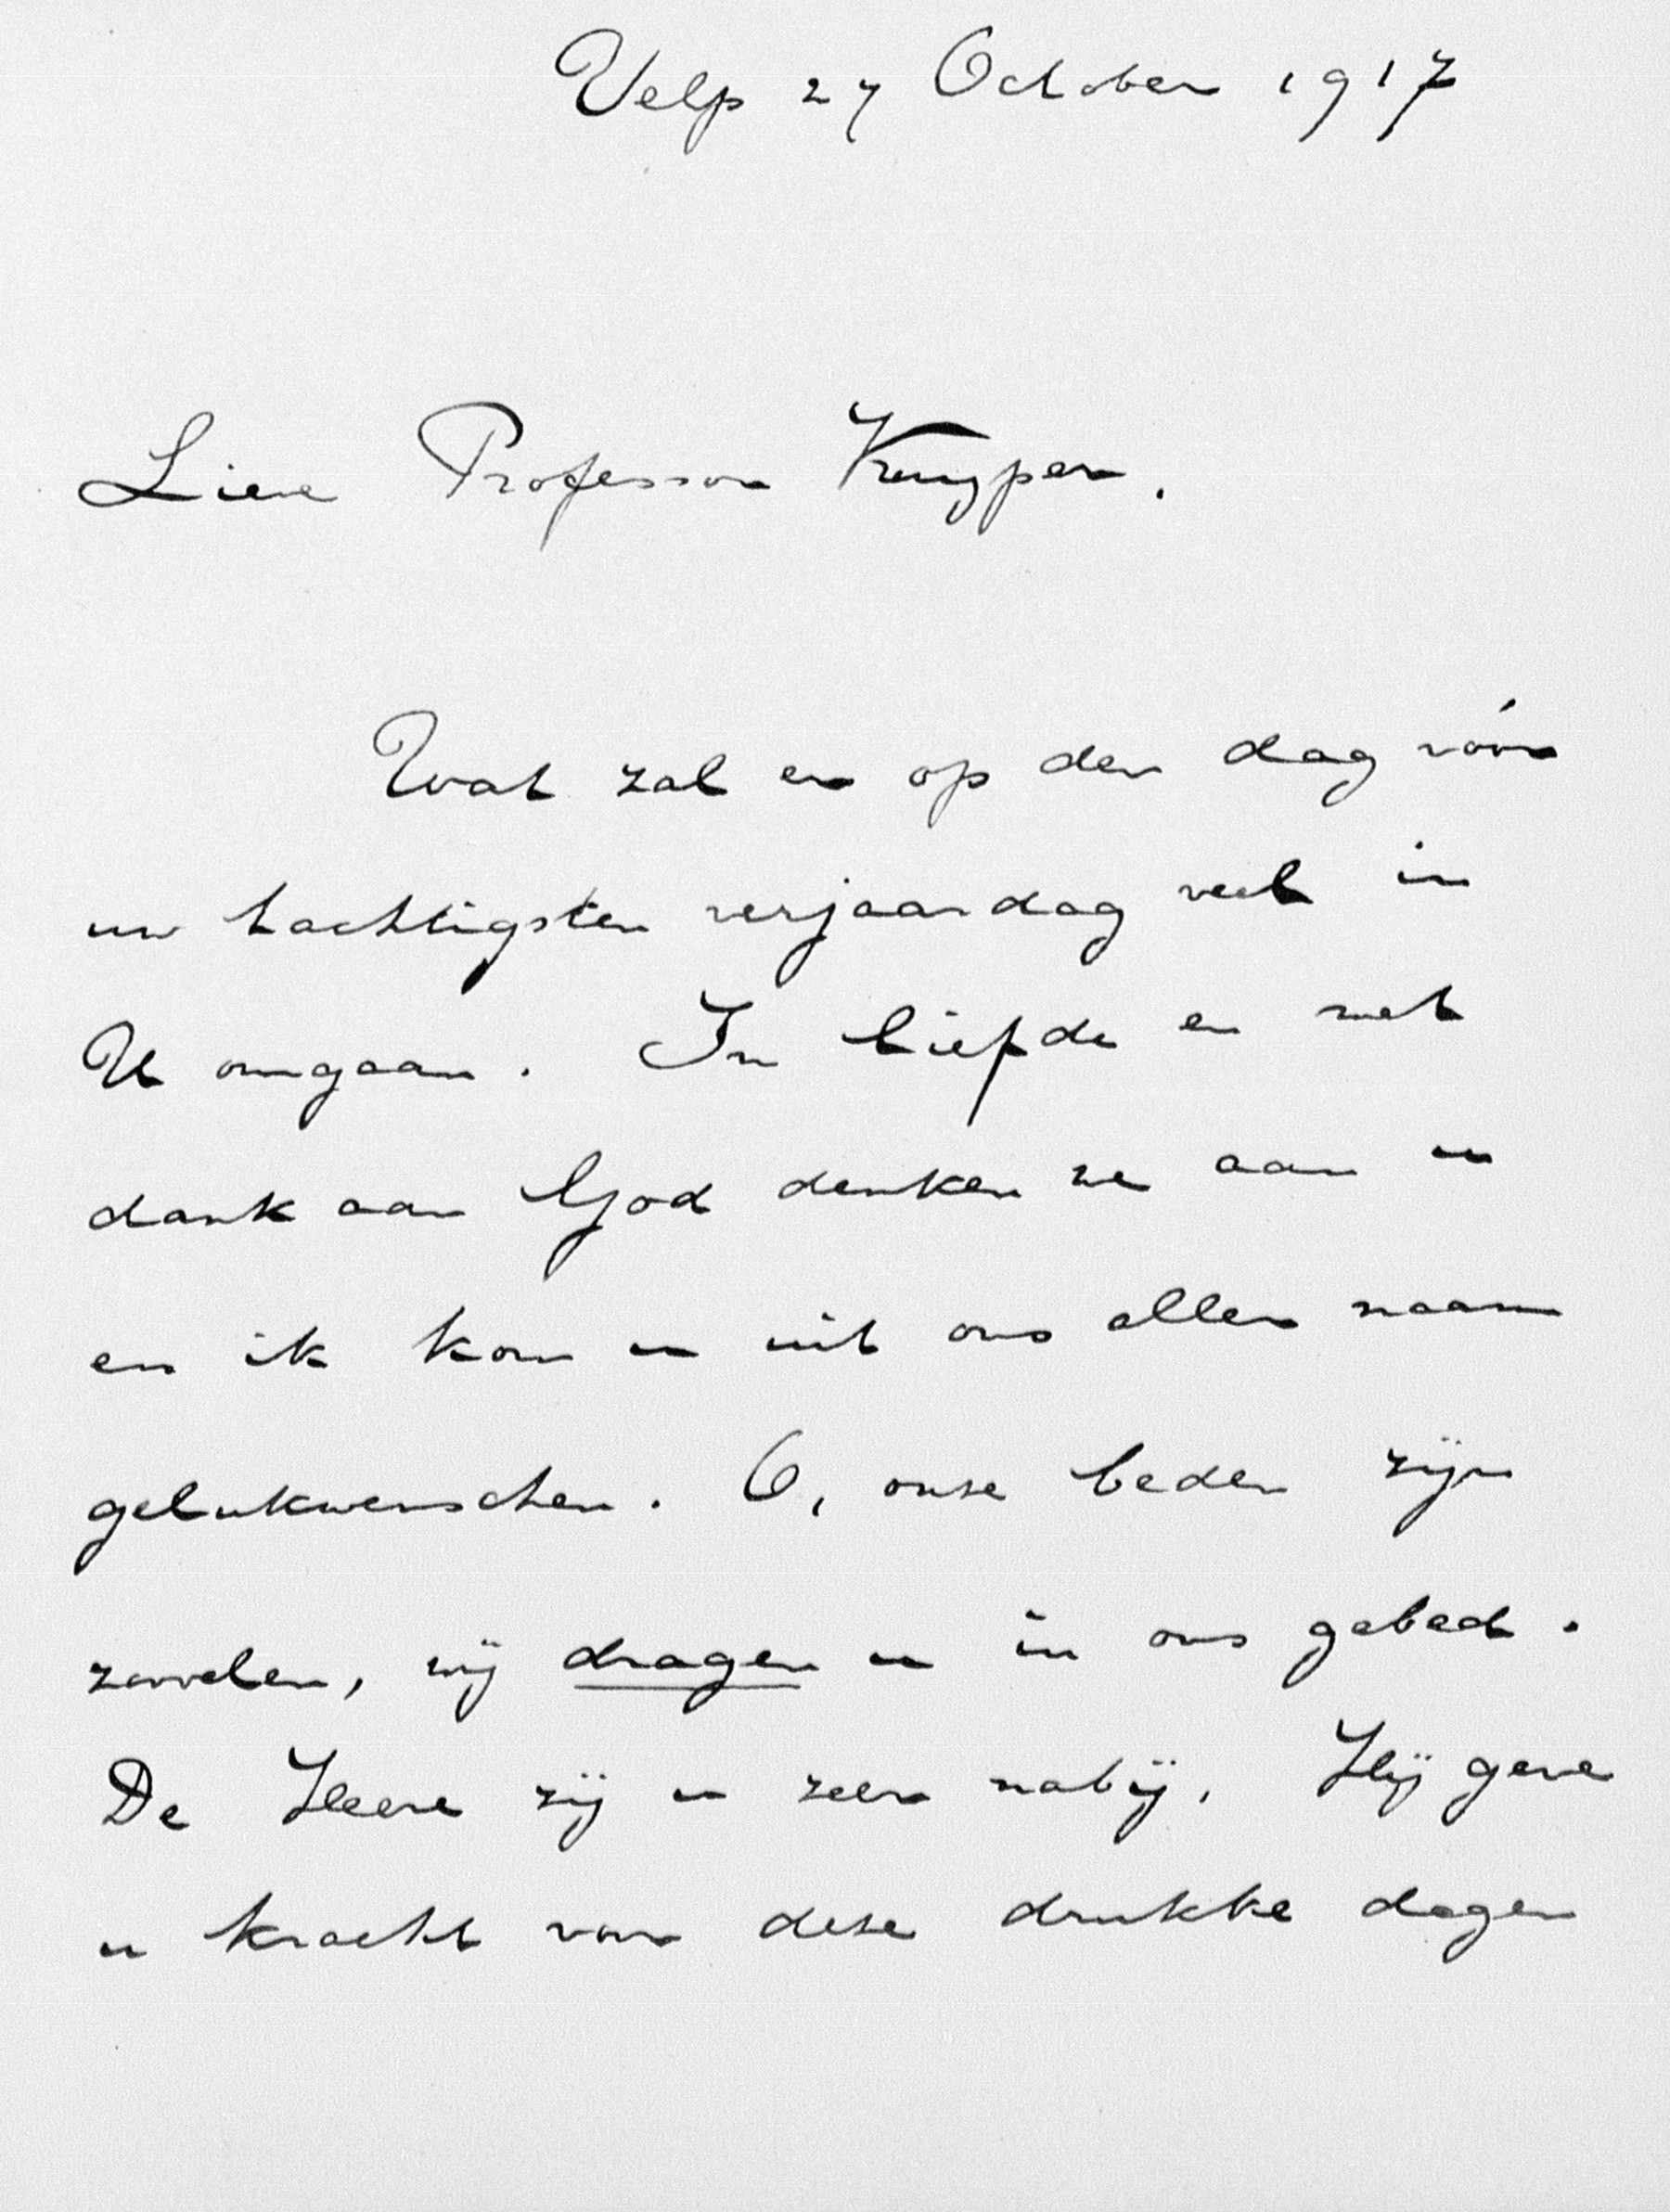 Velp 27 October 1917
Lieve Professor Kuyper.
Wat zal er op den dag vóór
uw tachtigsten verjaardag veel in
U omgaan. In liefde en met
dank aan God denken we aan u
en ik kom u uit ons aller naam
gelukwenschen. O, onze beden zijn
zoovelen, wij dragen u in ons gebed.
De Heere zij u zeer nabij, Hij geve
u kracht voor deze drukke dagen